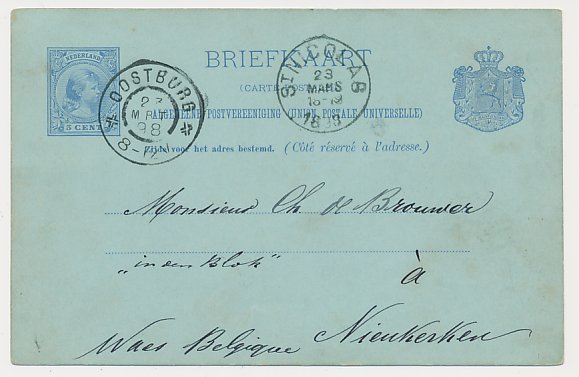 NEDERLAND
5 CENT
BRIEFKAART
(CARTE POSTALE)
ALGEMEENE POSTVEREENIGING (UNION POSTALE UNIVERSELLE)
Zijde voor het adres bestemd. (Côté réservé à l'adresse.)
OOSTBURG
23
MRT
98
8-12
ST NICOLAS
23
MARS
1898
Monsieur Ch de Brouwer
„in den Blok"
à
Waes Belgique Nieukerken